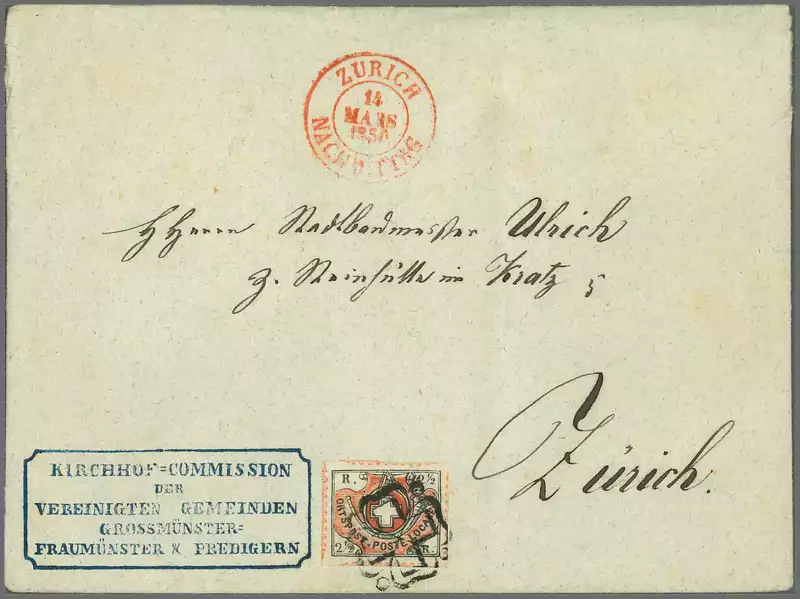 ZURICH
14
MARS
1850
NACHMITTAG
HHerrn Stadtbaumeister Ulrich
z. Steinhütte im Kratz
Zürich.
KIRCHHOF=COMMISSION
DER
VEREINIGTEN GEMEINDEN
GROSSMÜNSTER=
FRAUMÜNSTER & PREDIGERN
R. 2½
ORTSPOST. POSTE LOCALE
2½ R.